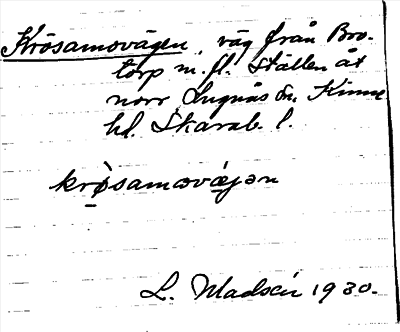 Krösamovägen, väg från Bro-
torp m. fl. ställen åt
norr, Lugnås sn, Kinne
hd. Skarab. l.
krø̀samovæ̀jən
L. Madsén 1930.